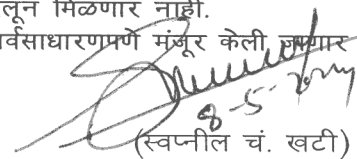 लून मिळणार नाही.
र्वसाधारणपणे मंजूर केली जाणार
8-5-
(स्वप्नील चं. खटी)